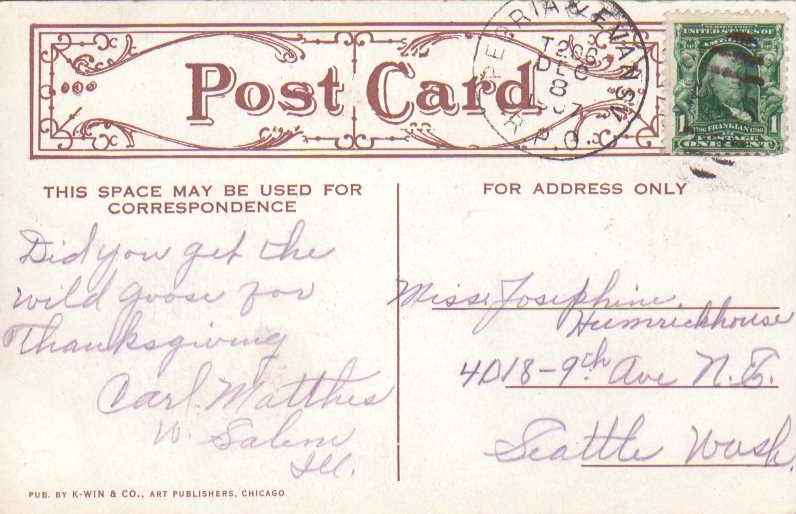 Post Card
PEORIA & EVANSV.
T206
DEC
8
1907
R.P.O.
UNITED STATES OF
1 FRANKLIN 1
ONE CENT
THIS SPACE MAY BE USED FOR
CORRESPONDENCE
FOR ADDRESS ONLY
Did you get the
wild goose for
Thanksgiving
Carl Matthes
W. Salem
Ill.
Miss Josephine
Humrickhouse
4018-9th Ave N.E.
Seattle Wash.
PUB. BY K-WIN & CO., ART PUBLISHERS, CHICAGO